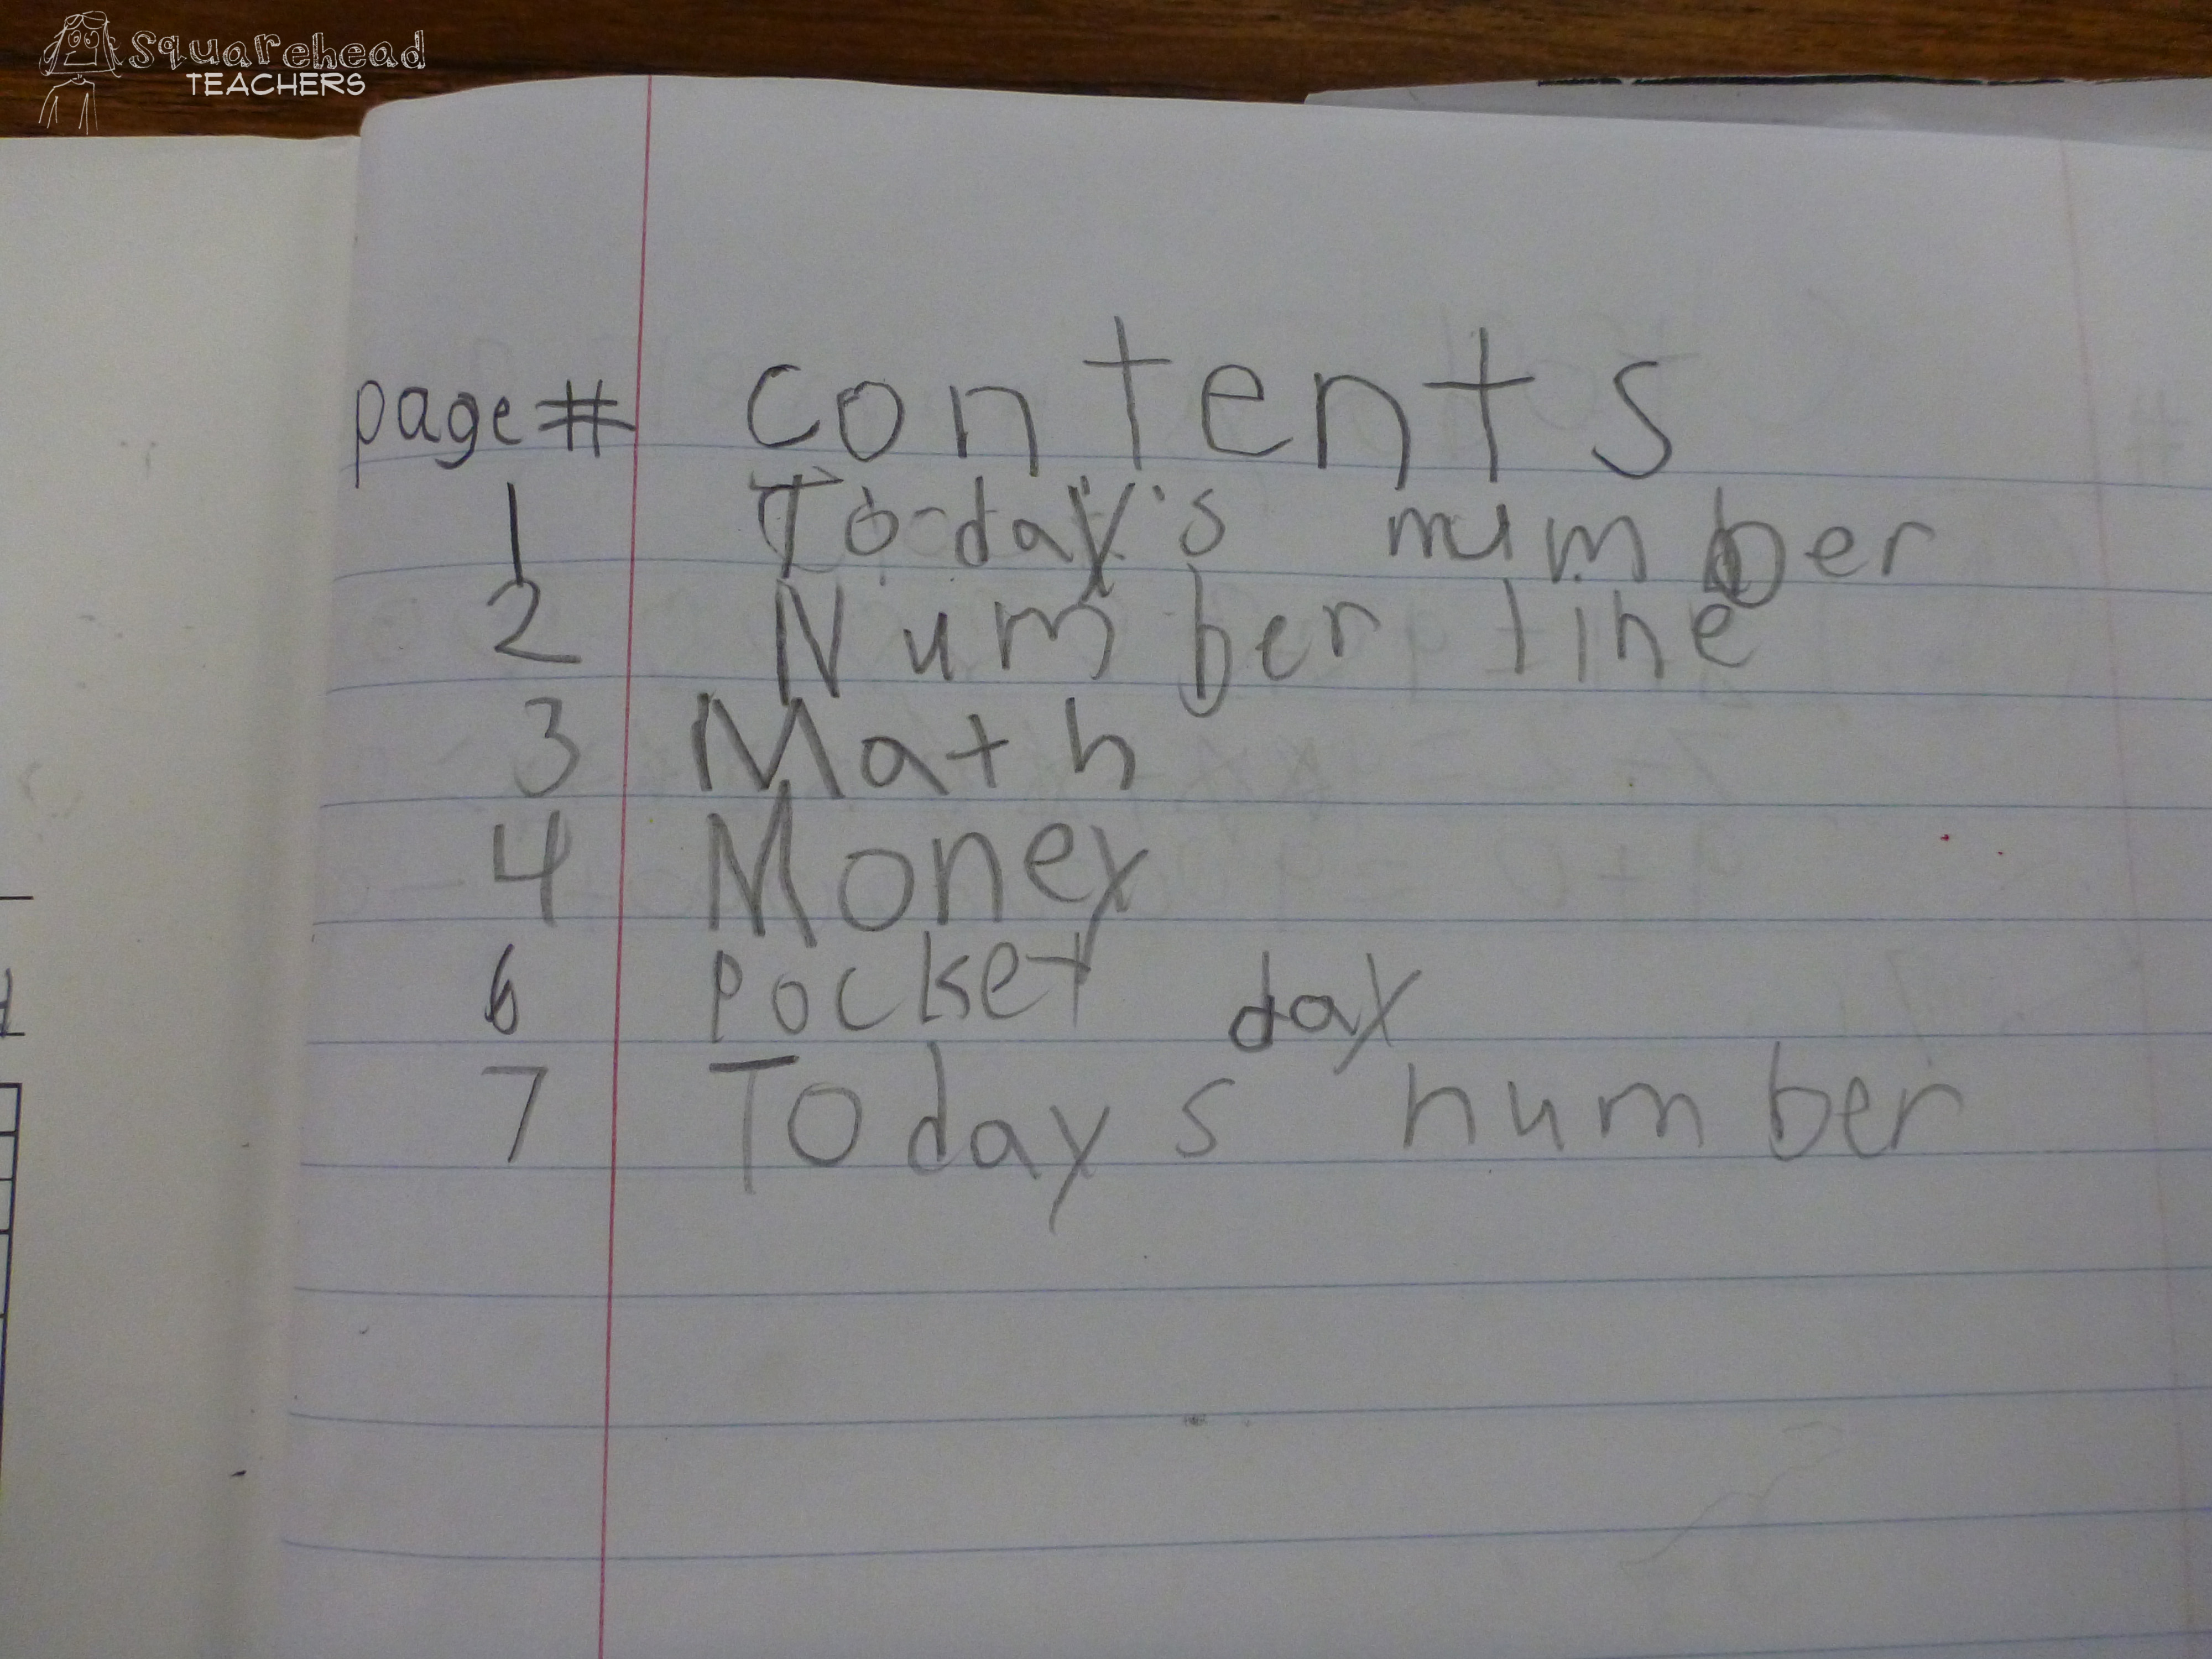 Squarehead
TEACHERS
page # contents
1 To-day's number
2 Number line
3 Math
4 Money
6 Pocket day
7 Todays number